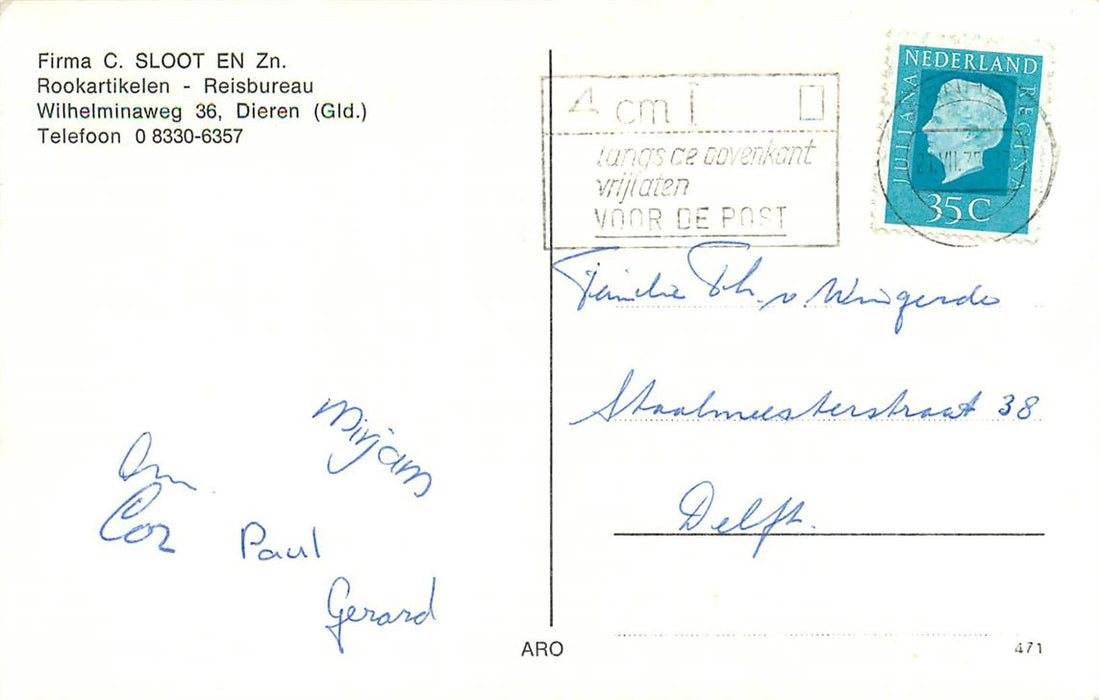 Firma C. SLOOT EN Zn.
Rookartikelen - Reisbureau
Wilhelminaweg 36, Dieren (Gld.)
Telefoon 0 8330-6357
4 cm
langs de bovenkant
vrijlaten
VOOR DE POST
NEDERLAND
JULIANA REGINA
35 C
Familie Th. v. Wingerde
Staalmeesterstraat 38
Delft.
Mirjam
Cor
Paul
Gerard
ARO
471